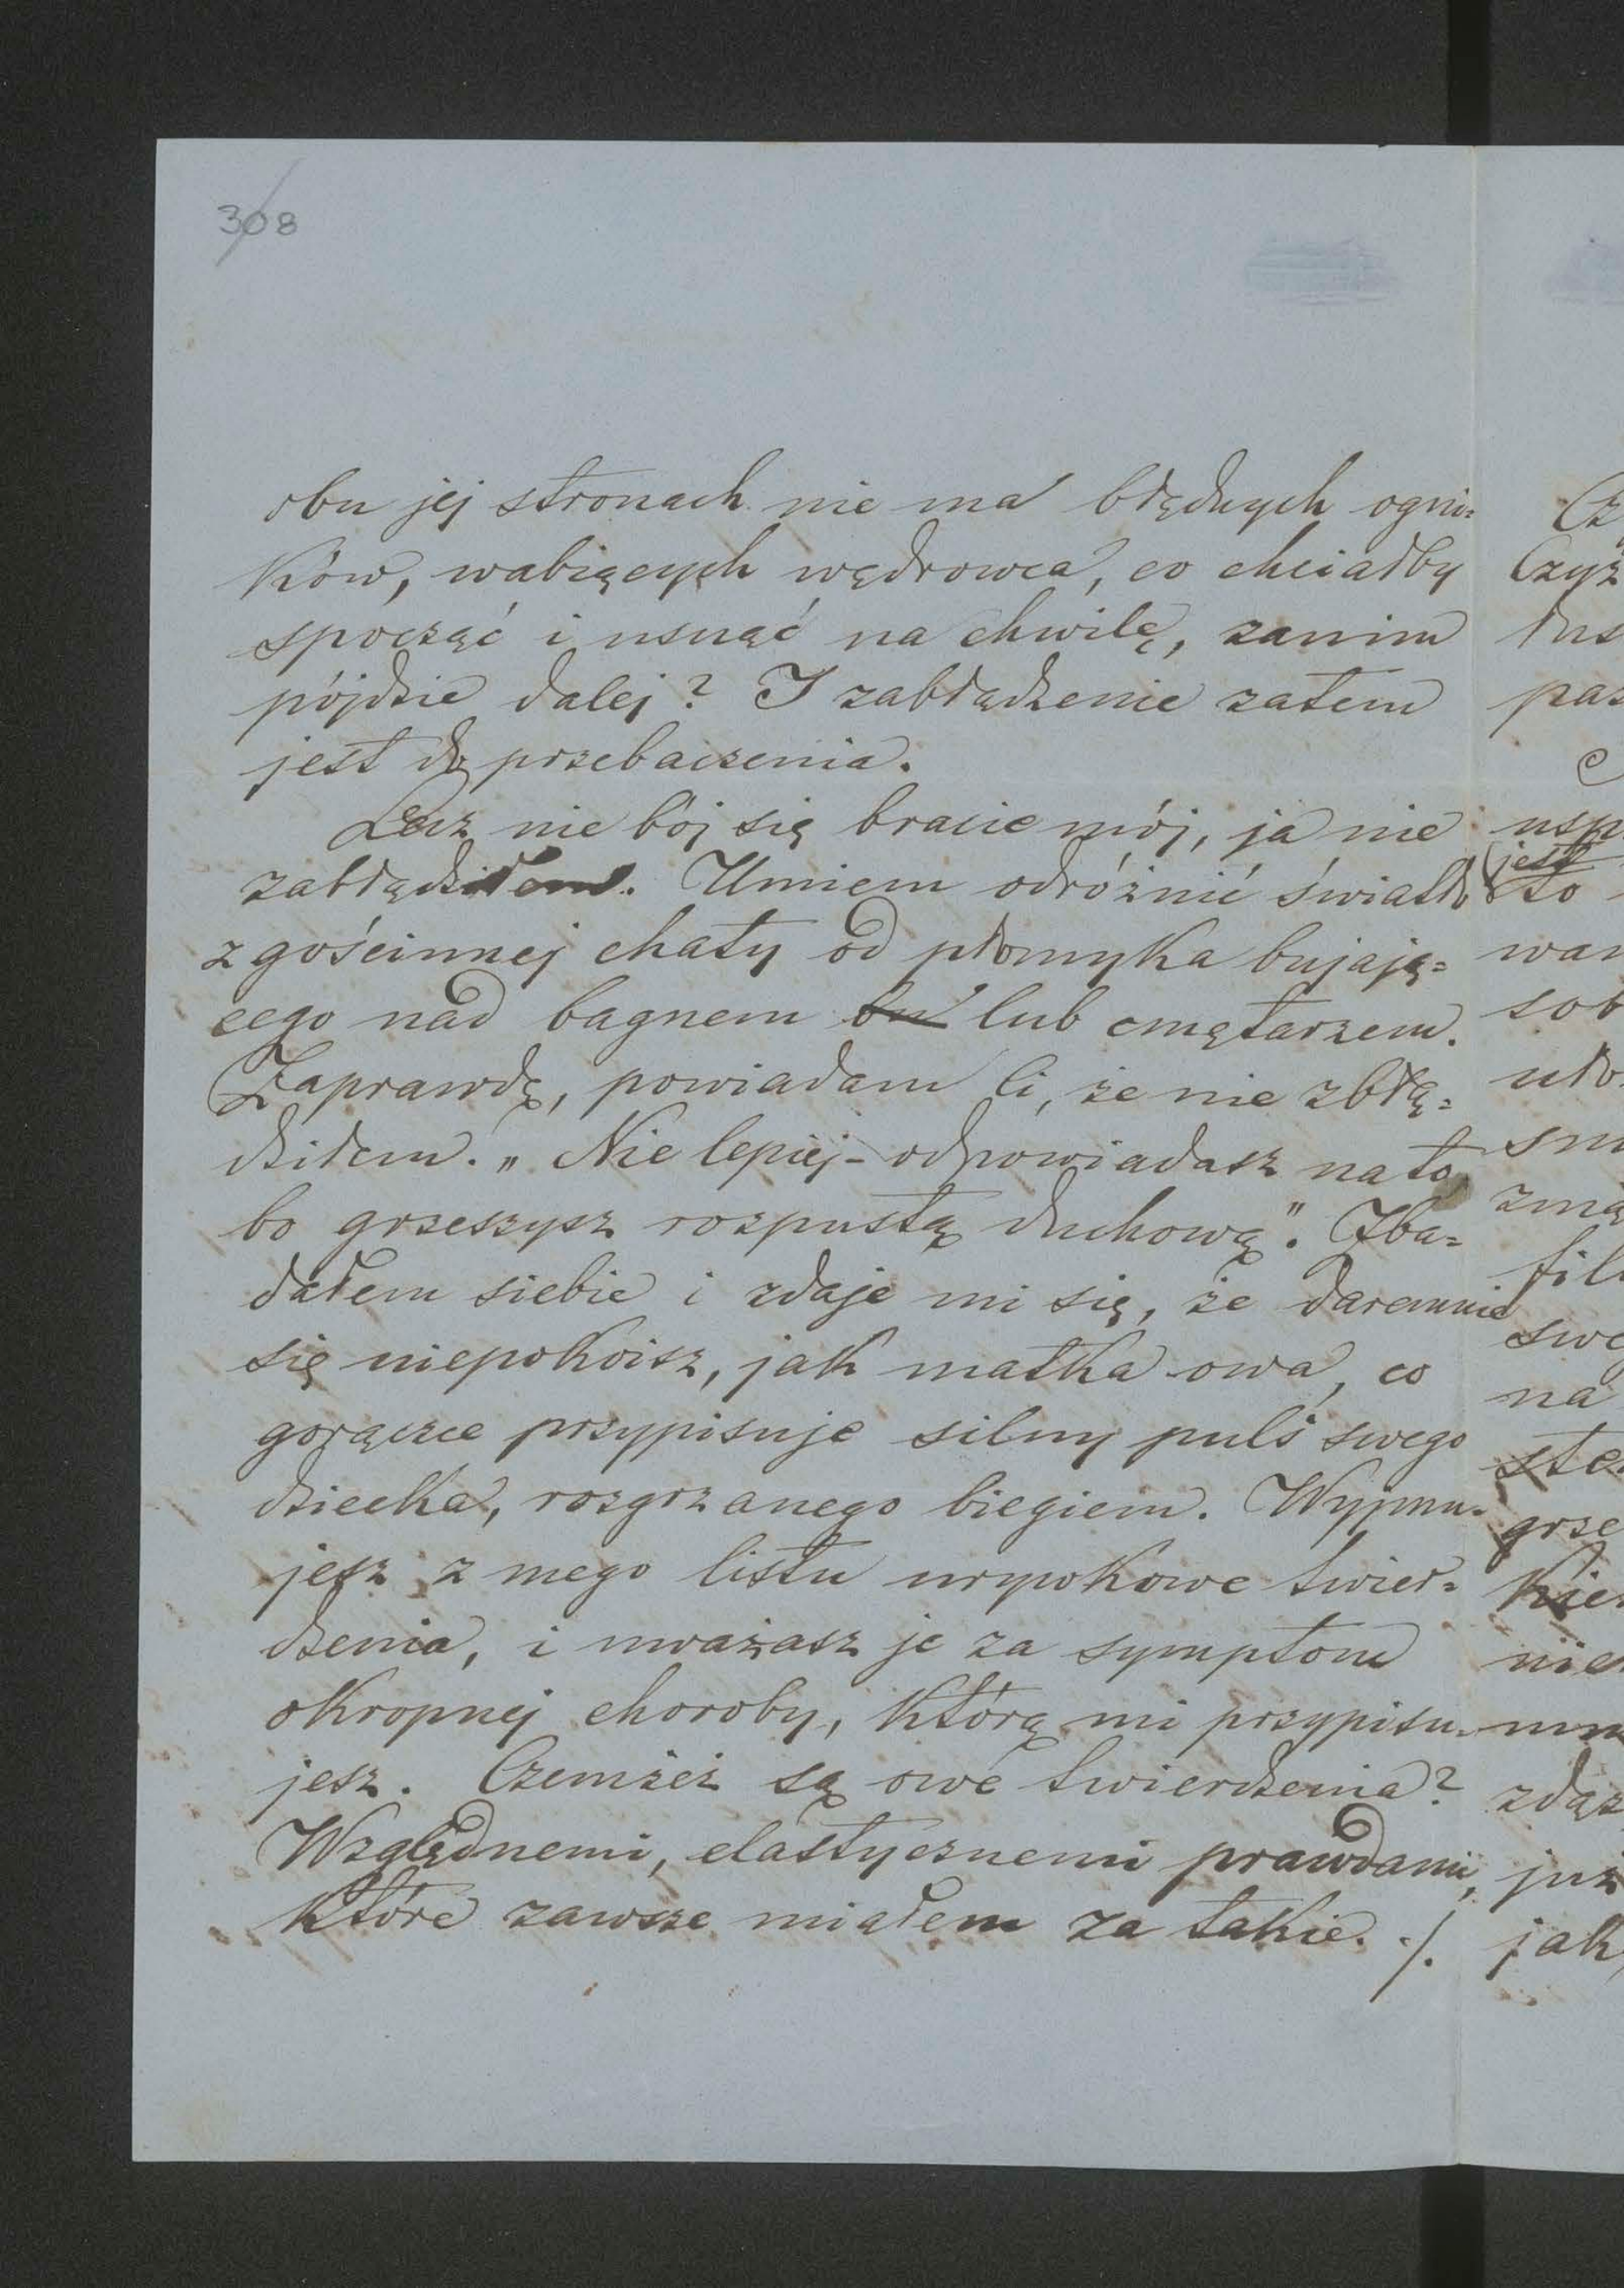 308
obu jej stronach nie ma błędnych ogni=
ków, wabiących wędrowca, co chciałby
spocząć i usnąć na chwilę, zanim
pójdzie dalej? I zabłądzenie zatem
jest do przebaczenia.
Lecz nie bój się bracie mój, ja nie
zabłądziłem. Umiem odróżnić światło
z gościnnej chaty od płomyka bujają=
cego nad bagnem lub cmętarzem.
Zaprawdę, powiadam Ci, że nie zbłą=
dziłem. „Nie lepiej – odpowiadasz na to,
bo grzeszysz rozpustą duchową". Zba=
dałem siebie i zdaje mi się, że daremnie
się niepokoisz, jak matka owa, co
gorączce przypisuje silny puls swego
dziecka, rozgrzanego biegiem. Wyjmu=
jesz z mego listu urywkowe twier=
dzenia, i uważasz je za symptom
okropnej choroby, którą mi przypisu=
jesz. Czemżeż są owe twierdzenia?
Względnemi, elastycznemi prawdami,
które zawsze miałem za takie. ./.
Cz
Czyż
pas
usp
jest
to
wan
sob
zmą
swe
na
grze
nie
zdąż
już
jak